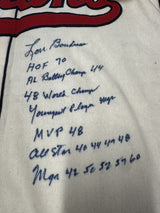 Lou Boudreau
HOF 70
AL Batting Champ 44
48 World Champ
Youngest Player Mgr
MVP 48
All Star 40 44 47 48
Mgr 42 50 52 57 60